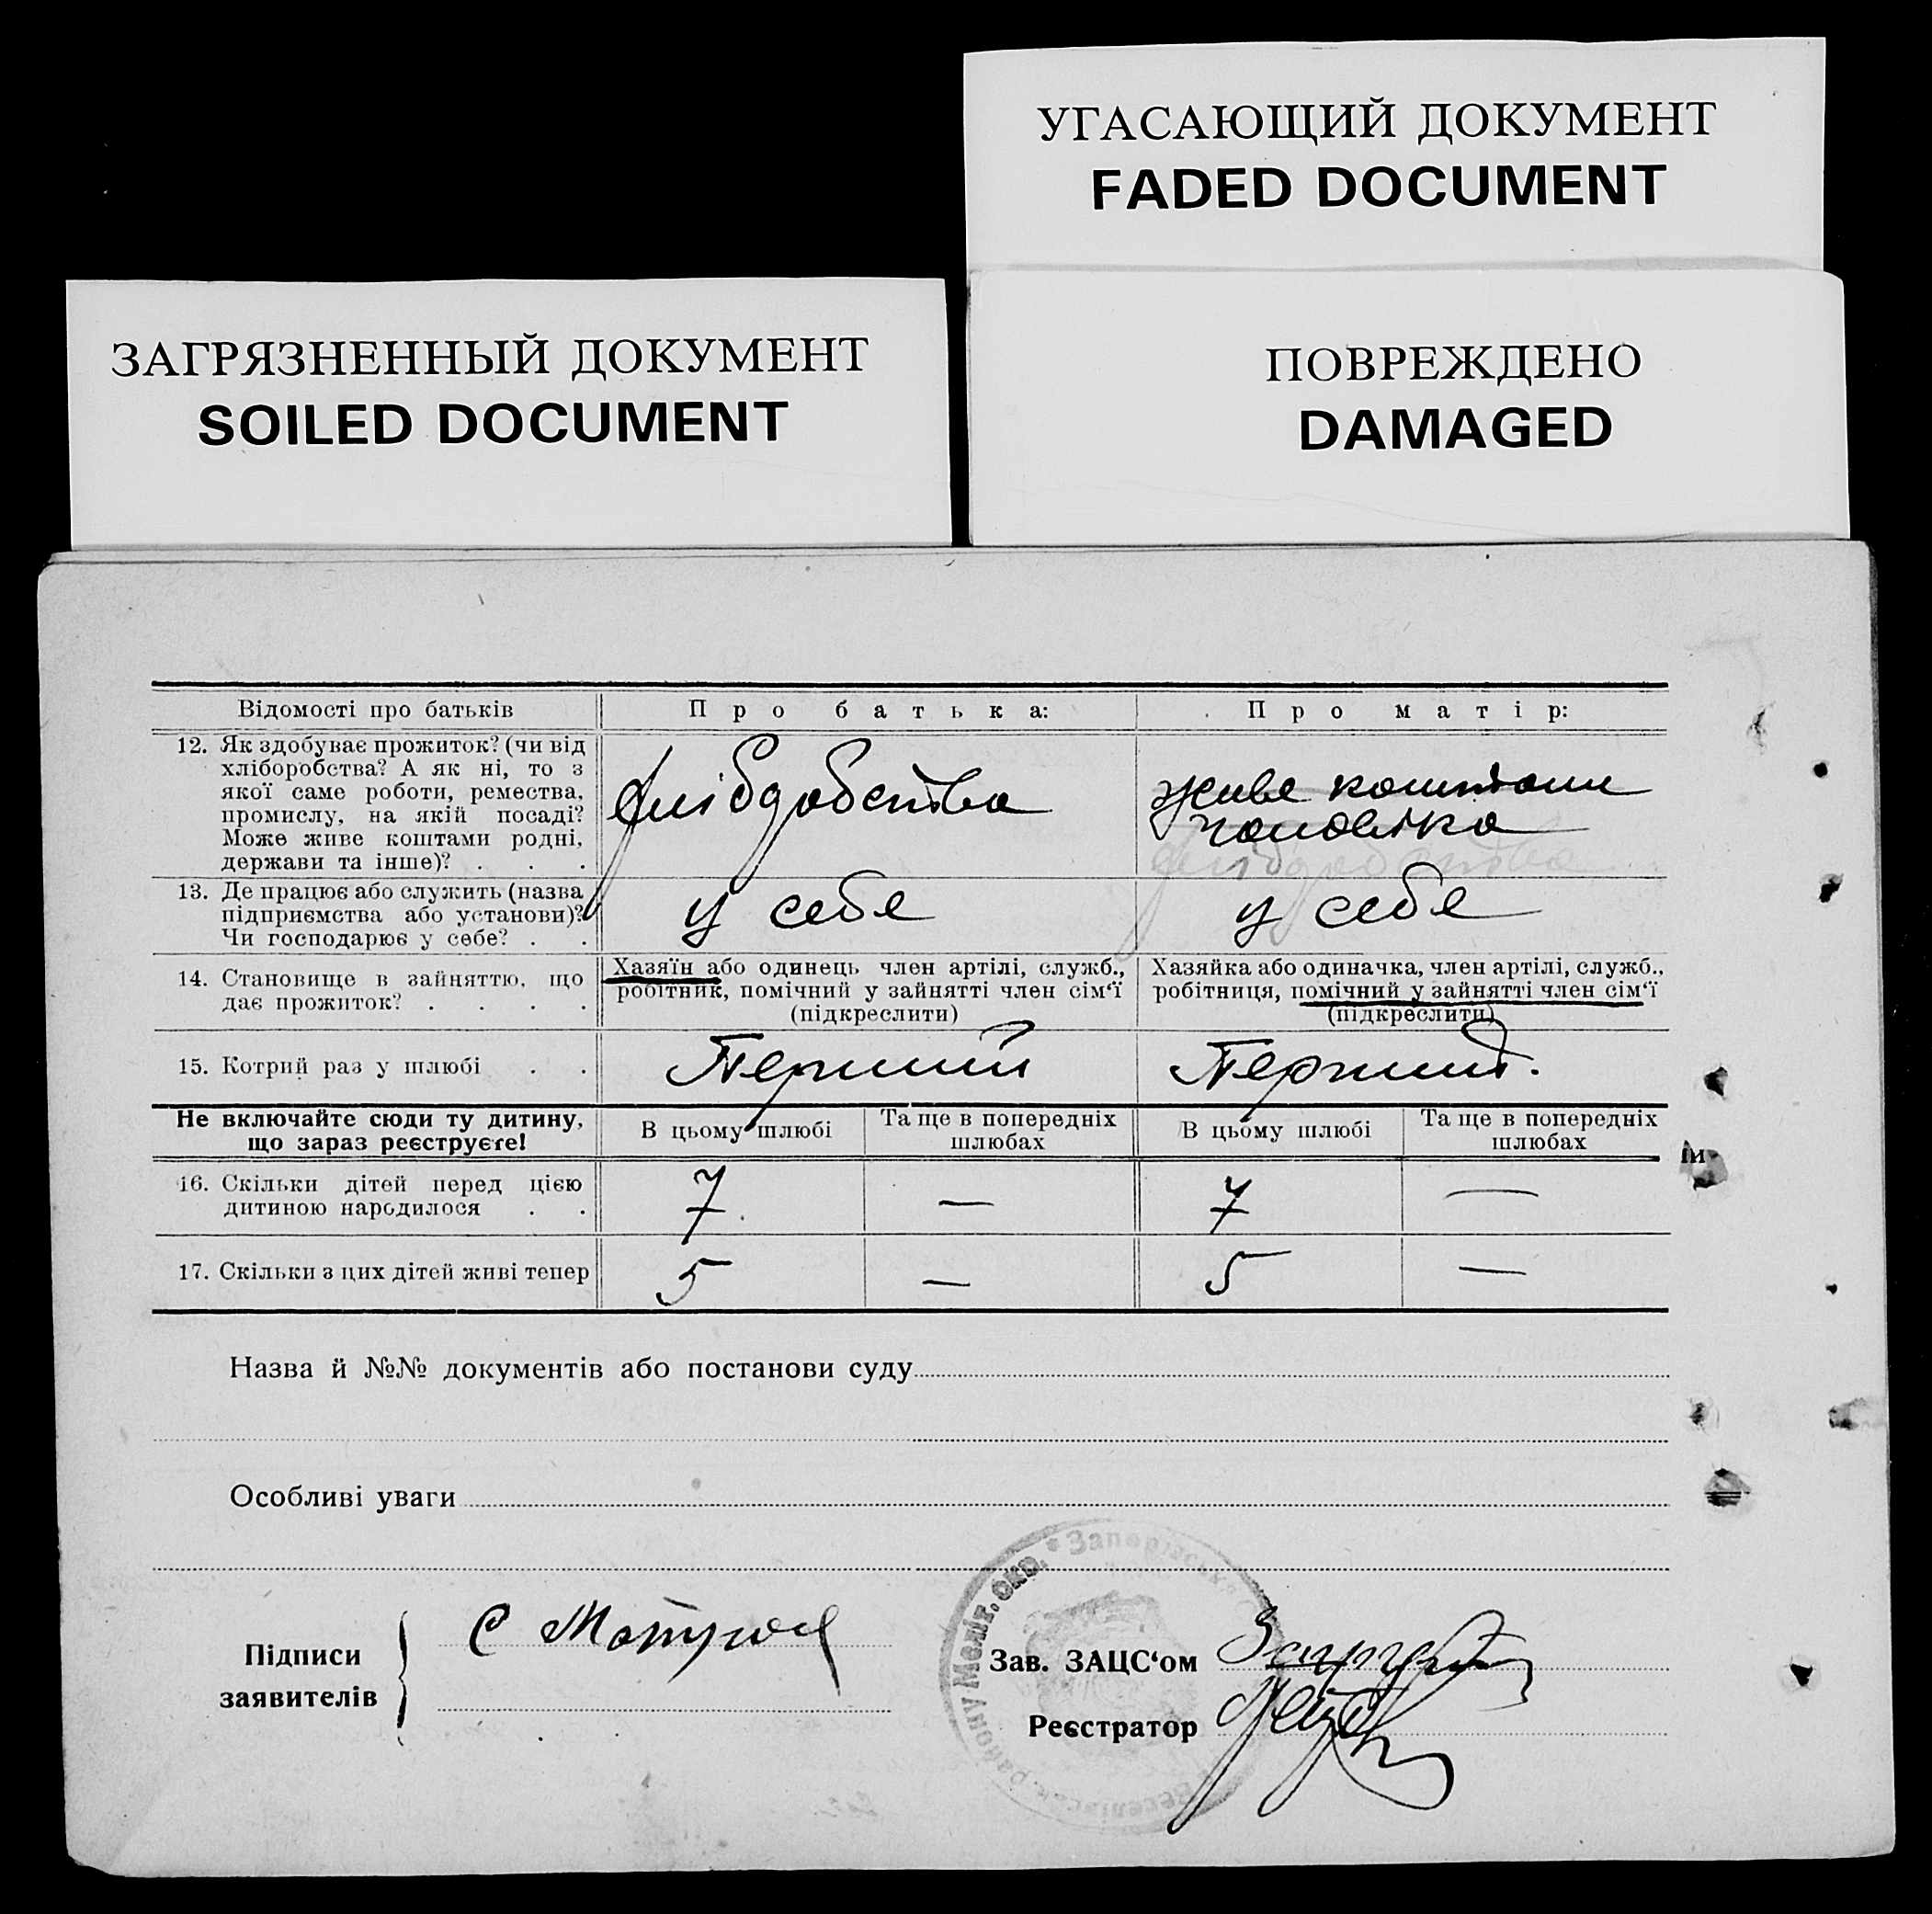 УГАСАЮЩИЙ ДОКУМЕНТ
FADED DOCUMENT
ЗАГРЯЗНЕННЫЙ ДОКУМЕНТ
SOILED DOCUMENT
ПОВРЕЖДЕНО
DAMAGED
Відомості про батьків
Про батька:
Про матір:
12. Як здобуває прожиток? (чи від
хліборобства? А як ні, то з
якої саме роботи, ремества,
промислу, на якій посаді?
Може живе коштами родні,
держави та інше)? . . .
живе коштами
чоловіка
13. Де працює або служить (назва
підприємства або установи)?
Чи господарює у себе? . .
у себе
у себе
14. Становище в зайняттю, що
дає прожиток? . . . .
Хазяїн або одинець член артілі, служб.,
робітник, помічний у зайнятті член сім‘ї
(підкреслити)
Хазяйка або одиначка, член артілі, служб.,
робітниця, помічний у зайнятті член сім‘ї
(підкреслити)
15. Котрий раз у шлюбі . .
Перший
Перший.
Не включайте сюди ту дитину,
що зараз реєструєте!
В цьому шлюбі
Та ще в попередніх
шлюбах
В цьому шлюбі
Та ще в попередніх
шлюбах
16. Скільки дітей перед цією
дитиною народилося . .
7
—
7
—
17. Скільки з цих дітей живі тепер
5
—
5
—
Назва й №№ документів або постанови суду
Особливі уваги
Підписи
заявителів
С
Зав. ЗАЦС‘ом
Реєстратор
району Меліт. окр.